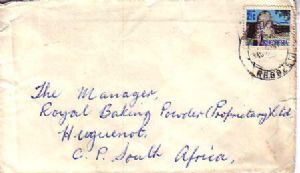 The Manager,
Royal Baking Powder (Proprietary) Ltd
Huguenot.
C. P. South Africa,